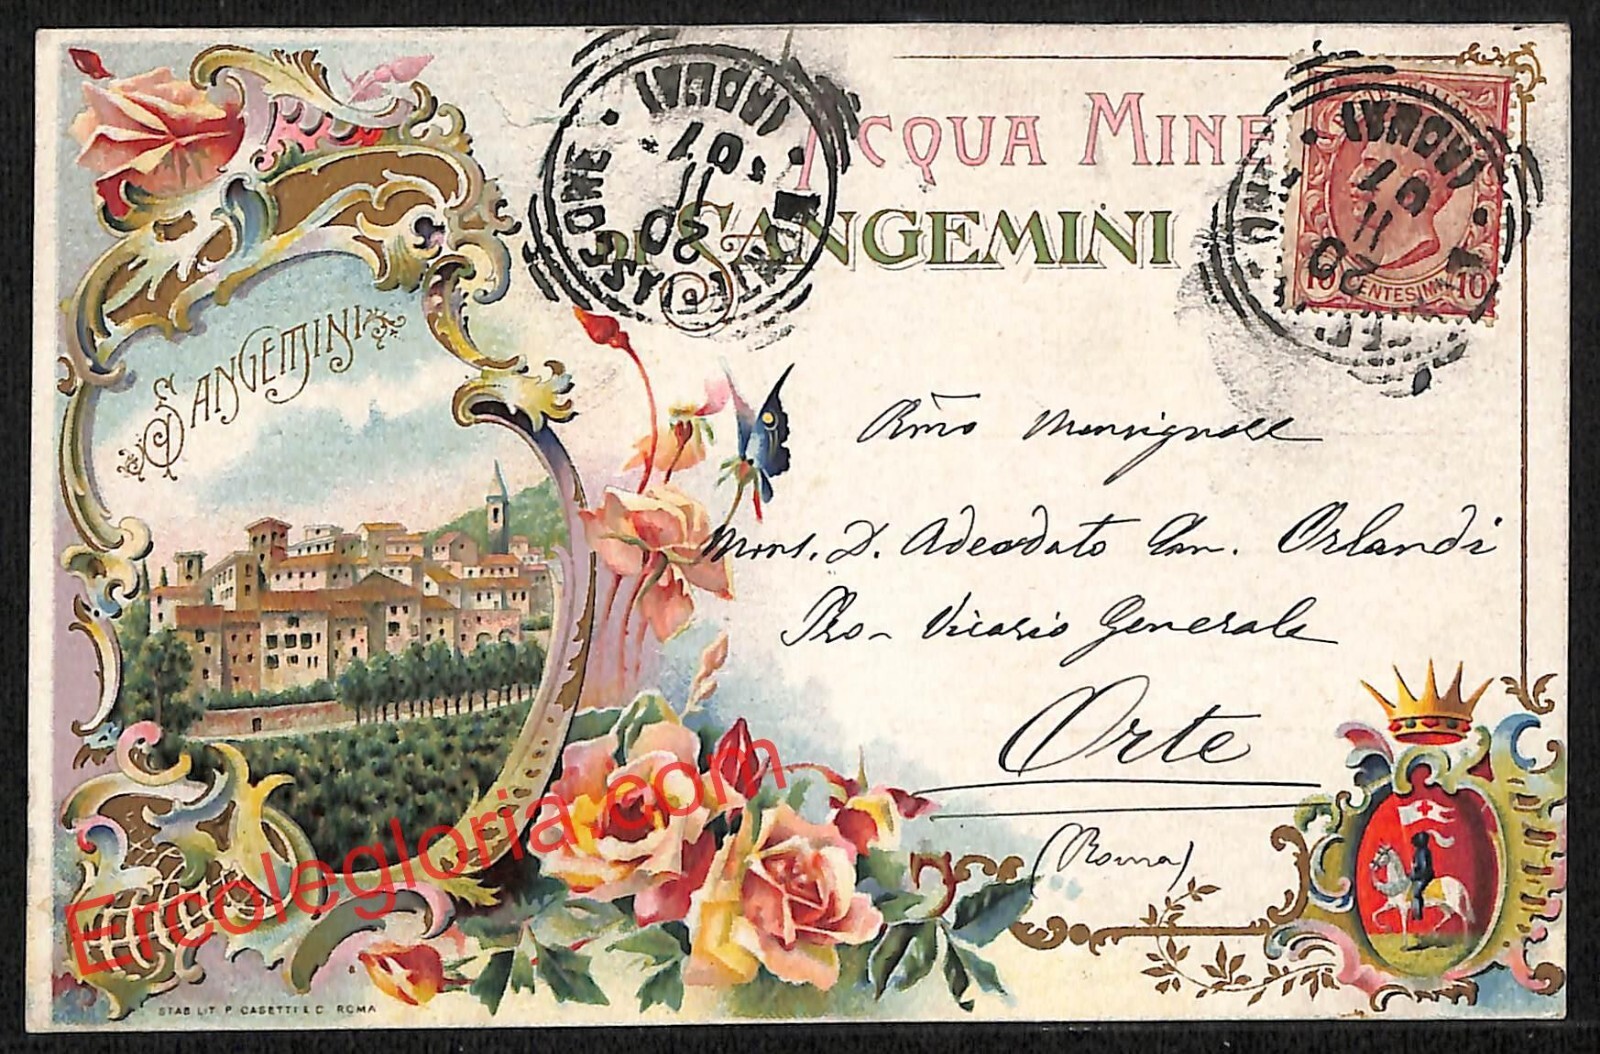 ACQUA MINE
DI SANGEMINI
SANGEMINI
10 CENTESIMI 10
Rmo Monsignore
Mons. D. Adeodato Can. Orlandi
Pro-Vicario Generale
Orte
(Roma)
STAB LIT P. CASETTI & C. ROMA
Ercolegloria.com